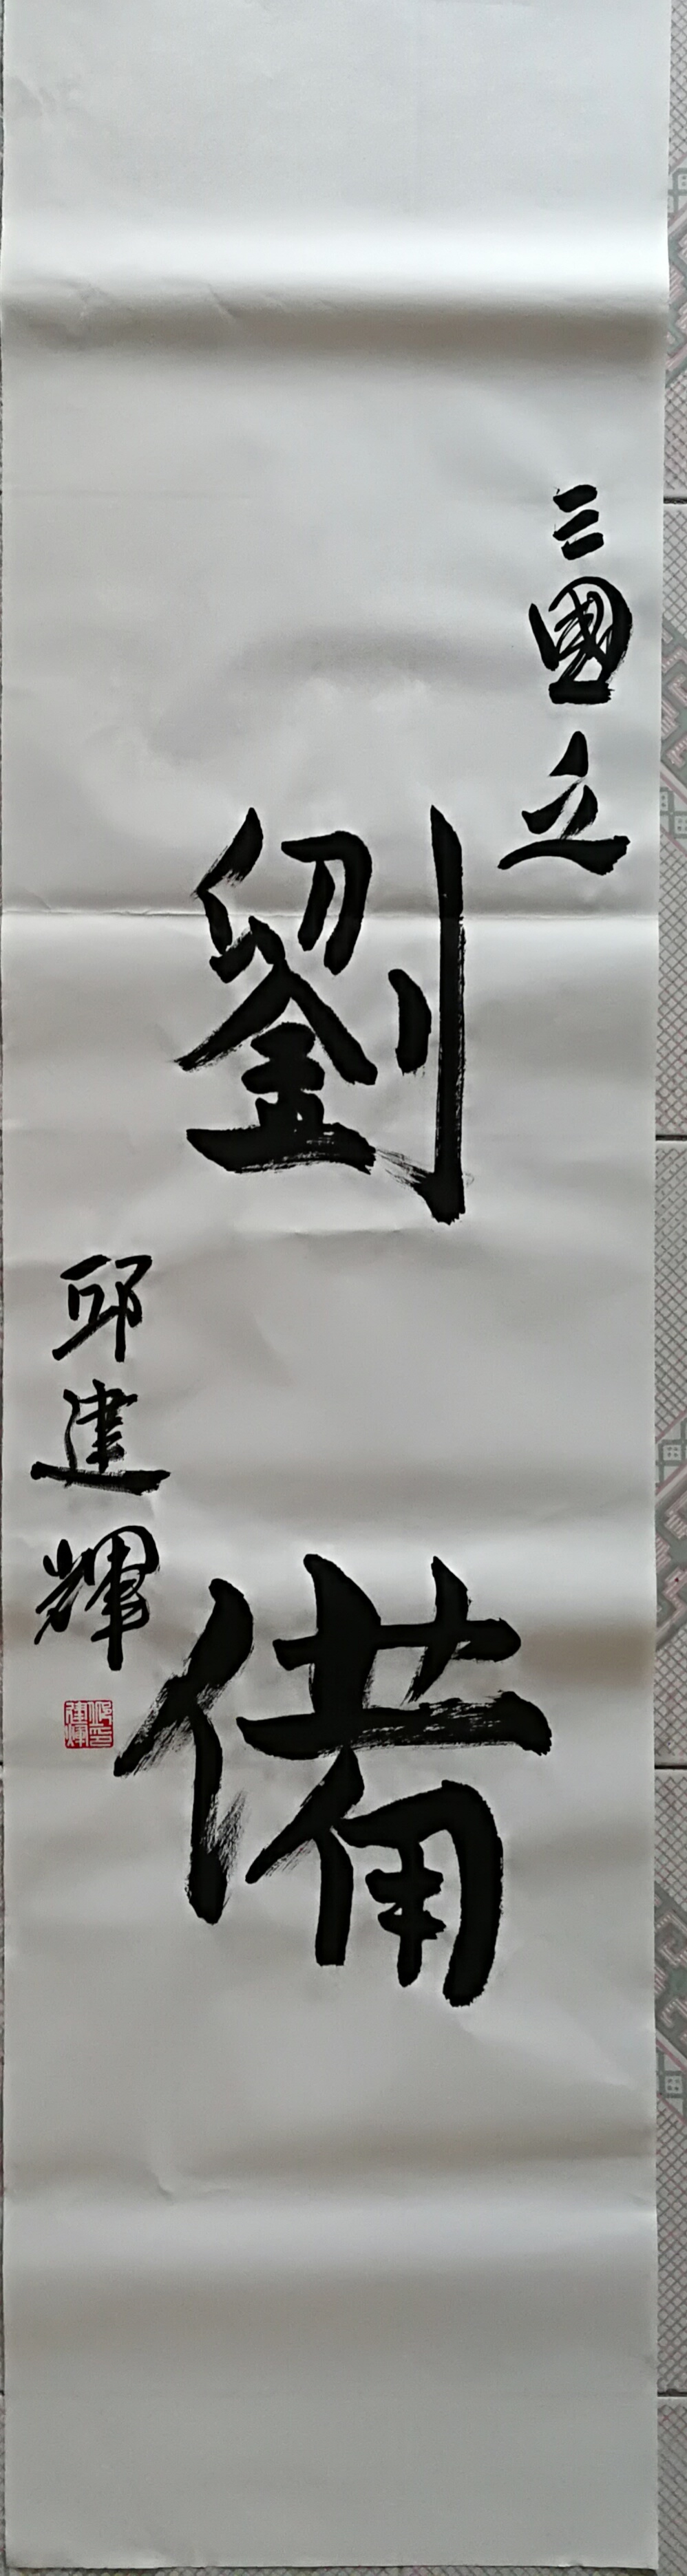 三國之
劉備
邱建輝